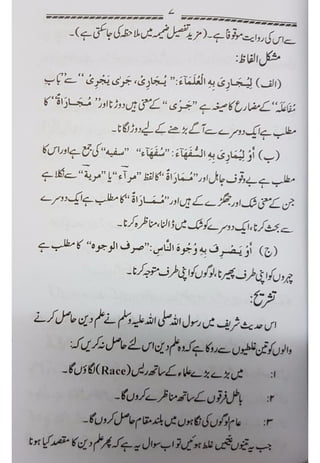 ۷
سے اس کی روایت موقوفاً ہے۔ (مزید تفصیل ضمیمہ میں ملاحظہ کی جاسکتی ہے)۔
مشکل الفاظ:
(الف) لِيُجَارِيَ بِهِ الْعُلَمَآءَ: ”يُجَارِيْ، جَرَى يَجْرِيْ“ سے ”باب
مُفَاعَلَہ“ کے مضارع کا صیغہ ہے ”جَرٰی“ کے معنی ہیں دوڑنا اور ”مُجَارَاةٌ“ کا
مطلب ہے ایک دوسرے سے آگے بڑھنے کے لیے دوڑ لگانا۔
(ب) أَوْ لِيُمَارِيَ بِهِ السُّفَهَآءَ: ”سُفَهَآء“ ”سفیه“ کی جمع ہے اور اس کا
مطلب ہے بے وقوف جاہل اور ”مُمَارَاةٌ“ کا لفظ ”مِرآء“ یا ”مریة“ سے نکلا ہے
جن کے معنی شک اور جھگڑے کے ہیں اور ”مُمَارَاةٌ“ کا مطلب ہے ایک دوسرے
سے بحث کرنا، ایک دوسرے کو شک میں ڈالنا، مناظرہ کرنا۔
(ج) أَوْ يَصْرِفَ بِهِ وُجُوهَ النَّاسِ: ”صرف الوجوه“ کا مطلب ہے
چہروں کو اپنی طرف پھیرنا، لوگوں کو اپنی طرف متوجہ کرنا۔
تشریح:
اس حدیث شریف میں رسول اللہ صلی اللہ علیہ وسلم نے علم دین حاصل کرنے
والوں کو تین غلطیوں سے روکا ہے کہ وہ علم دین اس لئے حاصل نہ کریں کہ:
۱: میں بڑے بڑے علماء کے ساتھ ریس (Race) لگاؤں گا۔
۲: باطل فرقوں کے ساتھ مناظرے کروں گا۔
۳: عام لوگوں کی نگاہوں میں بلند مقام حاصل کروں گا۔
جب یہ تینوں نیتیں غلط ہوئیں تو اب سوال یہ ہے کہ پھر علم دین کا مقصد کیا ہونا